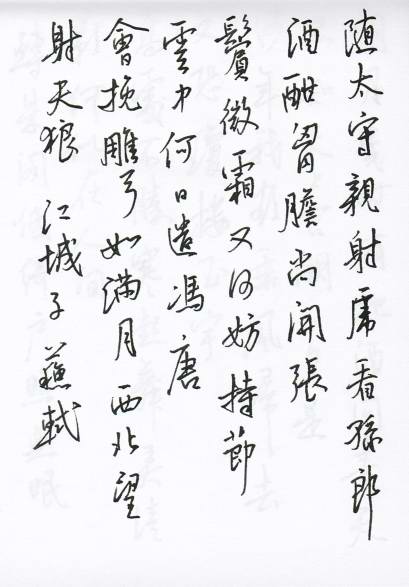 随太守親射虎看孫郎
酒酣胷膽尚開張
鬢微霜又何妨持節
雲中何日遣馮唐
會挽雕弓如滿月西北望
射天狼 江城子 蘇軾